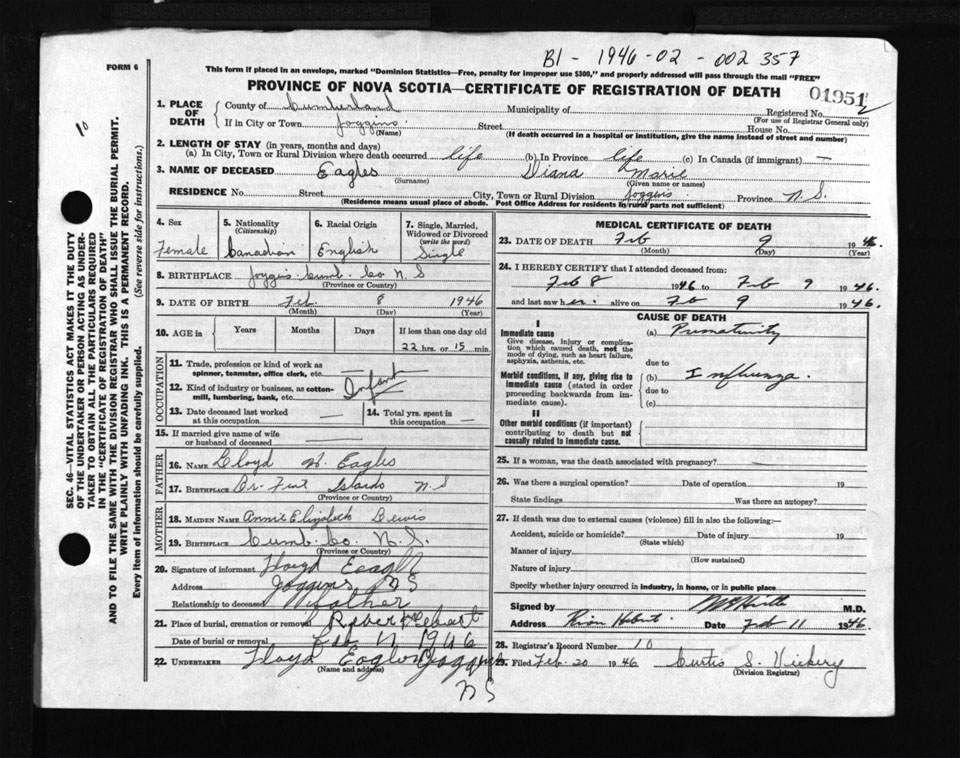 B1 - 1946-02 - 002357
FORM 6
This form if placed in an envelope, marked "Dominion Statistics—Free, penalty for improper use $300," and properly addressed will pass through the mail "FREE"
PROVINCE OF NOVA SCOTIA—CERTIFICATE OF REGISTRATION OF DEATH
01951
1. PLACE OF DEATH
County of Cumberland Municipality of Registered No.
(For use of Registrar General only)
If in City or Town Joggins Street House No.
(Name) (If death occurred in a hospital or institution, give the name instead of street and number)
2. LENGTH OF STAY (in years, months and days)
(a) In City, Town or Rural Division where death occurred life (b) In Province life (c) In Canada (if immigrant) —
3. NAME OF DECEASED Eagles Diana Marie
(Surname) (Given name or names)
RESIDENCE No. Street City, Town or Rural Division Joggins Province N.S.
(Residence means usual place of abode. Post Office Address for residents in rural parts not sufficient)
4. Sex
Female
5. Nationality
(Citizenship)
Canadian
6. Racial Origin
English
7. Single, Married, Widowed or Divorced
(write the word)
Single
8. BIRTHPLACE Joggins Cumb. Co N.S
(Province or Country)
9. DATE OF BIRTH Feb. 8 1946
(Month) (Day) (Year)
10. AGE in Years Months Days If less than one day old
22 hrs. or 15 min.
OCCUPATION
11. Trade, profession or kind of work as
spinner, teamster, office clerk, etc.
12. Kind of industry or business, as cotton-
mill, lumbering, bank, etc. Infant
13. Date deceased last worked
at this occupation —
14. Total yrs. spent in
this occupation —
15. If married give name of wife
or husband of deceased
FATHER
16. NAME Floyd H. Eagles
17. BIRTHPLACE Islands N.S
(Province or Country)
MOTHER
18. MAIDEN NAME Annie Elizabeth Lewis
19. BIRTHPLACE Cumb. Co. N.S.
(Province or Country)
20. Signature of informant Floyd Eagles
Address Joggins NS
Relationship to deceased father
21. Place of burial, cremation or removal River Hebert
Date of burial or removal Feb 1946
22. UNDERTAKER Floyd Eagles Joggins
(Name and address)
NS
MEDICAL CERTIFICATE OF DEATH
23. DATE OF DEATH Feb 9 1946.
(Month) (Day) (Year)
24. I HEREBY CERTIFY that I attended deceased from:
Feb 8 1946 to Feb 9 1946.
and last saw her alive on Feb 9 1946.
CAUSE OF DEATH
I
Immediate cause
Give disease, injury or complica-
tion which caused death, not the
mode of dying, such as heart failure,
asphyxia, asthenia, etc.
(a) Prematurity
due to
Morbid conditions, if any, giving rise to
immediate cause (stated in order
proceeding backwards from im-
mediate cause).
(b) Influenza.
due to
(c)
II
Other morbid conditions (if important)
contributing to death but not
causally related to immediate cause.
25. If a woman, was the death associated with pregnancy?
26. Was there a surgical operation? Date of operation 19
State findings Was there an autopsy?
27. If death was due to external causes (violence) fill in also the following:—
Accident, suicide or homicide? Date of injury 19
(State which)
Manner of injury
(How sustained)
Nature of injury
Specify whether injury occurred in industry, in home, or in public place
Signed by M.D.
Address River Hebert Date Feb 11 1946.
28. Registrar's Record Number 10
29. Filed Feb. 20 1946 Curtis S. Vickery
(Division Registrar)
10
SEC. 46—VITAL STATISTICS ACT MAKES IT THE DUTY
OF THE UNDERTAKER OR PERSON ACTING AS UNDER-
TAKER TO OBTAIN ALL THE PARTICULARS REQUIRED
IN THE "CERTIFICATE OF REGISTRATION OF DEATH"
AND TO FILE THE SAME WITH THE DIVISION REGISTRAR WHO SHALL ISSUE THE BURIAL PERMIT.
WRITE PLAINLY WITH UNFADING INK. THIS IS A PERMANENT RECORD.
Every item of information should be carefully supplied. (See reverse side for instructions.)